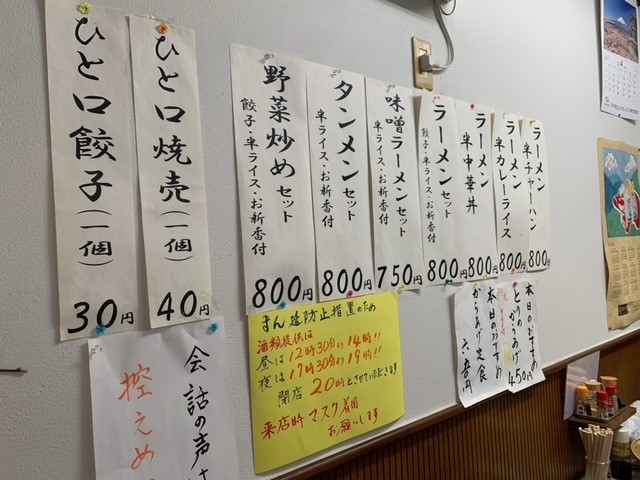 ひと口餃子(一個)
30円
ひと口焼売(一個)
40円
野菜炒めセット
餃子・半ライス・お新香付
800円
タンメンセット
半ライス・お新香付
800円
味噌ラーメンセット
半ライス・お新香付
750円
ラーメンセット
餃子・半ライス・お新香付
800円
ラーメン
半中華丼
800円
ラーメン
半カレーライス
800円
ラーメン
半チャーハン
800円
会話の声は
控えめ
まん延防止措置のため
酒類提供は
昼は12時30分から14時!!
夜は17時30分から19時!!
閉店 20時とさせていただきます
来店時マスク着用
お願いします
本日のおすすめ
450円
本日のおすすめ
からあげ定食